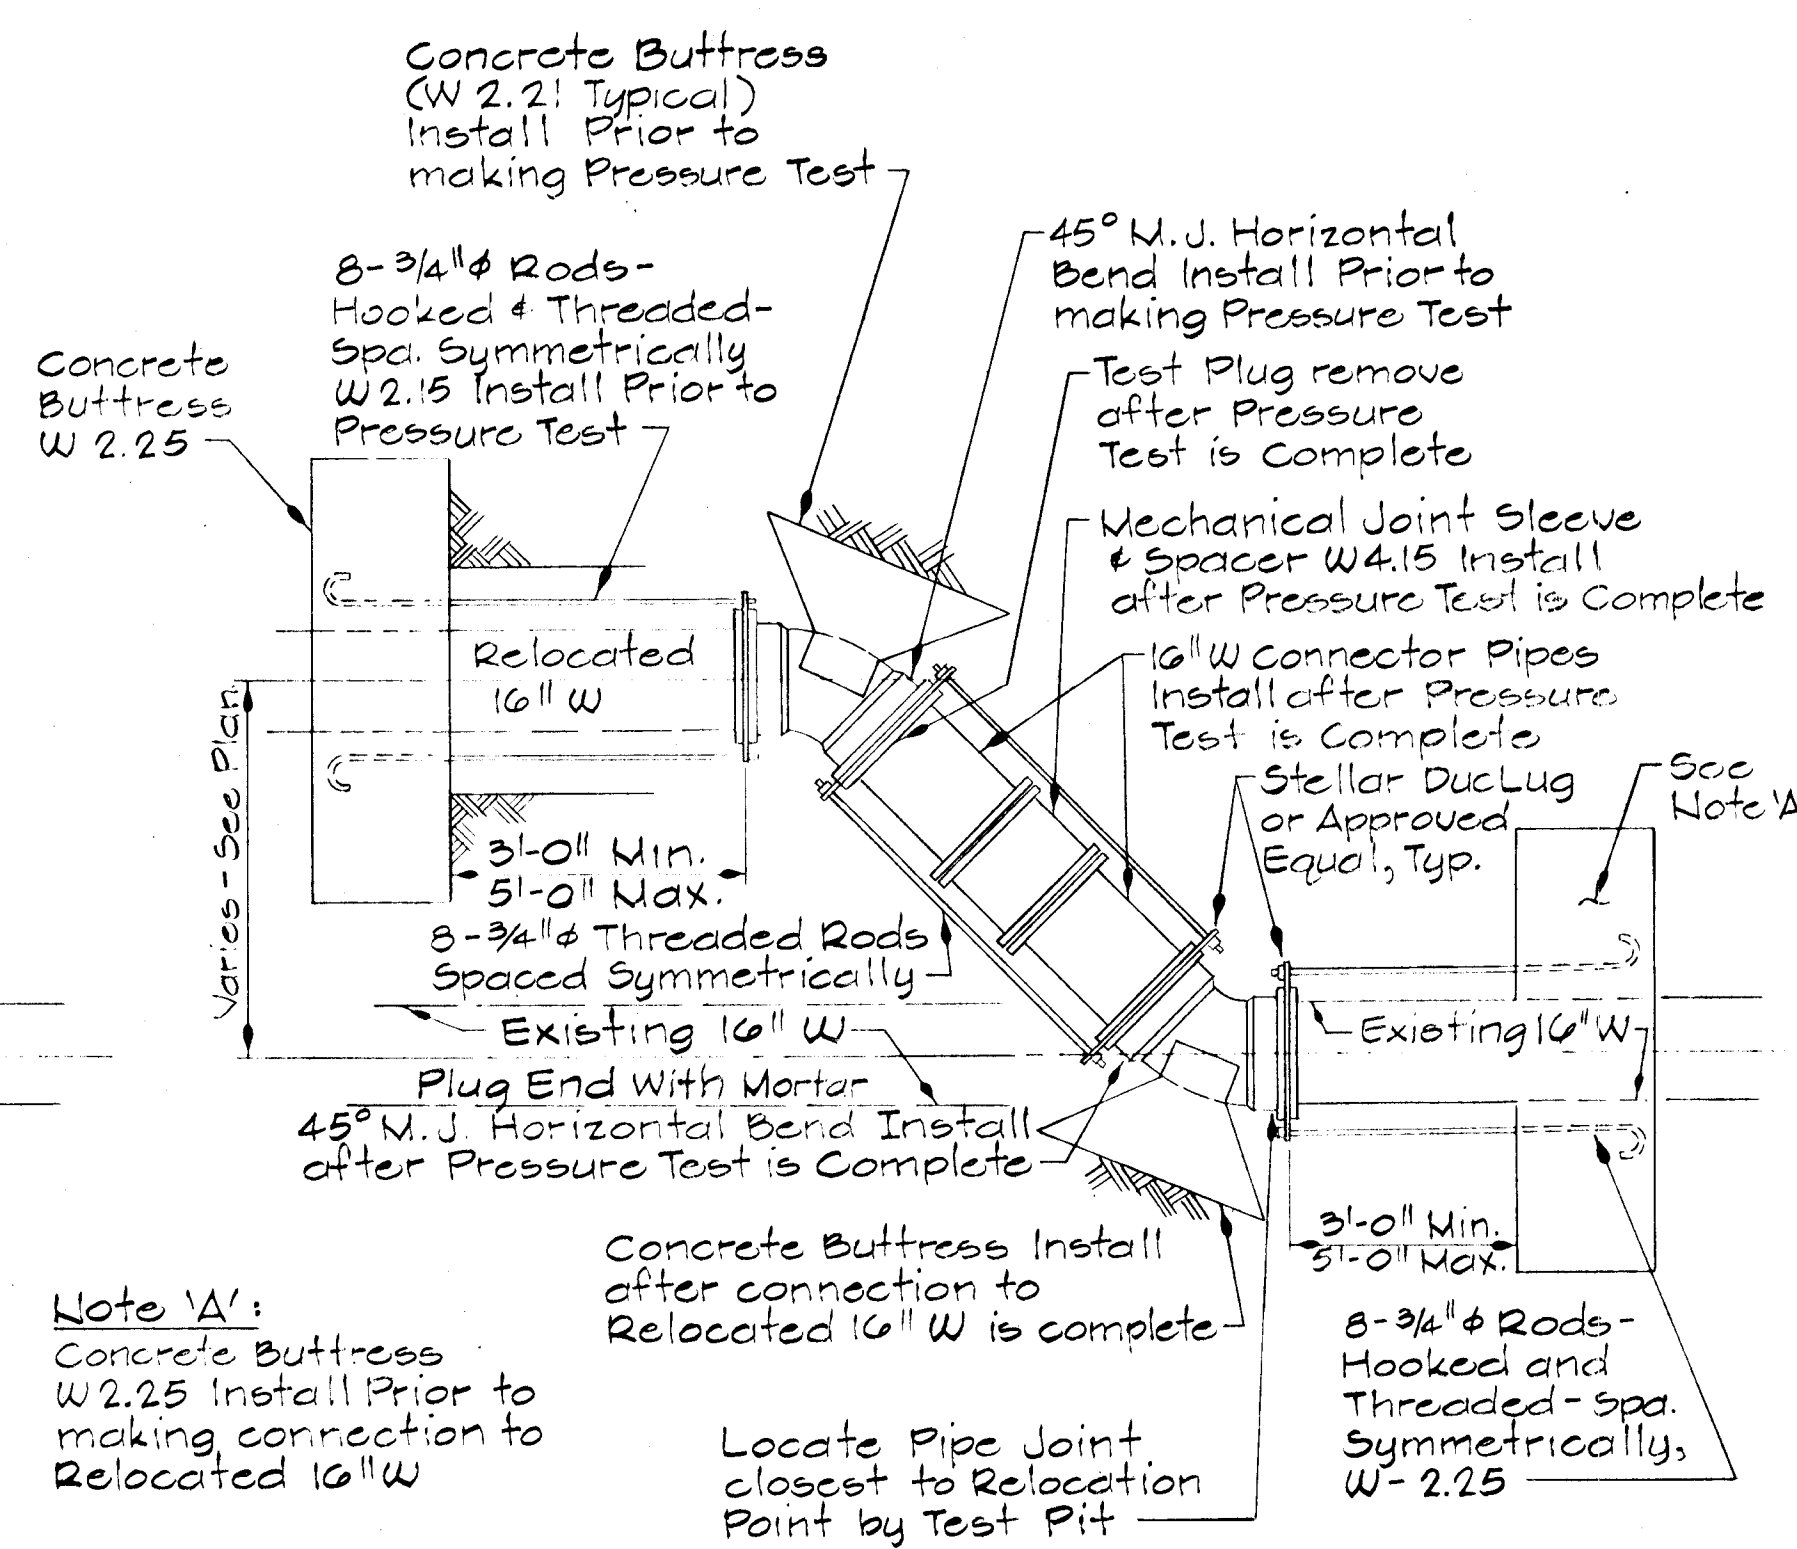 Concrete Buttress
(W 2.21 Typical)
Install Prior to
making Pressure Test
8-3/4"φ Rods-
Hooked & Threaded-
Spa. Symmetrically
W2.15 Install Prior to
Pressure Test
Concrete
Buttress
W 2.25
45° M.J. Horizontal
Bend Install Prior to
making Pressure Test
Test Plug remove
after Pressure
Test is Complete
Mechanical Joint Sleeve
& Spacer W4.15 Install
after Pressure Test is Complete
16" W Connector Pipes
Install after Pressure
Test is Complete
Stellar DucLug
or Approved
Equal, Typ.
See
Note 'A
Relocated
16" W
Varies-See Plan
3'-0" Min.
5'-0" Max.
8-3/4"φ Threaded Rods
Spaced Symmetrically
Existing 16" W
Existing 16" W
Plug End With Mortar
45° M.J. Horizontal Bend Install
after Pressure Test is Complete
Concrete Buttress Install
after connection to
Relocated 16" W is complete
3'-0" Min.
5'-0" Max.
Note 'A':
Concrete Buttress
W2.25 Install Prior to
making connection to
Relocated 16" W
Locate Pipe Joint
closest to Relocation
Point by Test Pit
8-3/4"φ Rods-
Hooked and
Threaded-Spa.
Symmetrically,
W-2.25